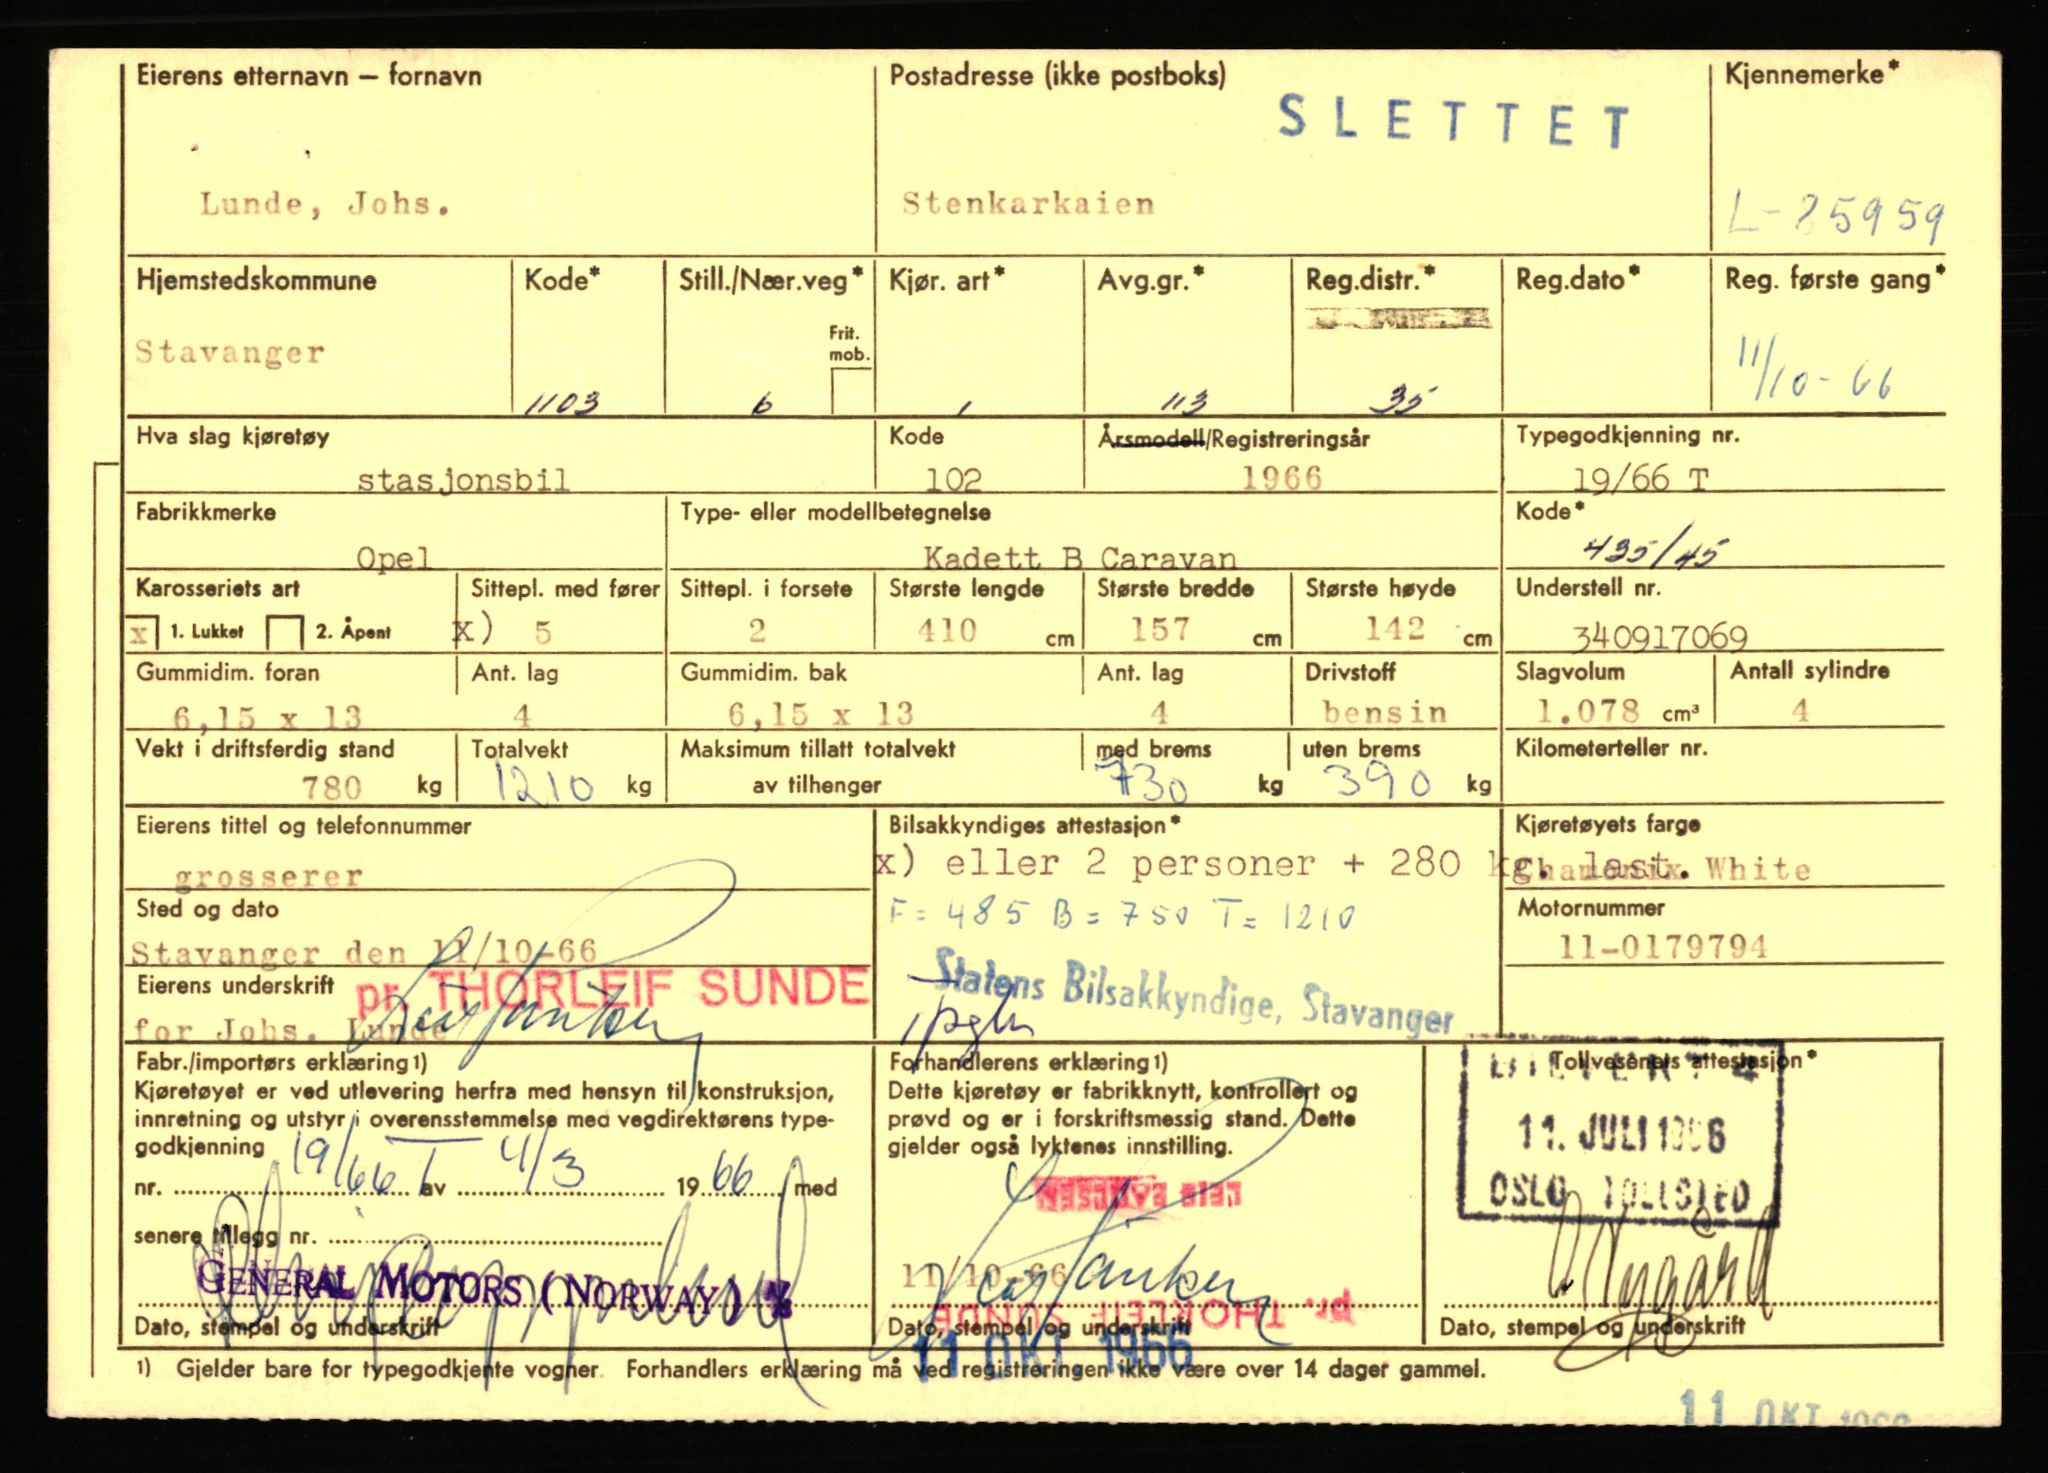 Eierens etternavn – fornavn
Lunde, Johs.
Postadresse (ikke postboks)
SLETTET
Stenkarkaien
Kjennemerke*
L-85959
Hjemstedskommune
Stavanger
Kode*
1103
Still./Nær.veg*
Frit. mob.
6
Kjør. art*
1
Avg.gr.*
113
Reg.distr.*
35
Reg.dato*
Reg. første gang*
11/10-66
Hva slag kjøretøy
stasjonsbil
Kode
102
Årsmodell/Registreringsår
1966
Typegodkjenning nr.
19/66 T
Fabrikkmerke
Opel
Type- eller modellbetegnelse
Kadett B Caravan
Kode*
435/45
Karosseriets art
x 1. Lukket 2. Åpent
Sittepl. med fører
x) 5
Sittepl. i forsete
2
Største lengde
410 cm
Største bredde
157 cm
Største høyde
142 cm
Understell nr.
340917069
Gummidim. foran
6,15 x 13
Ant. lag
4
Gummidim. bak
6,15 x 13
Ant. lag
4
Drivstoff
bensin
Slagvolum
1.078 cm³
Antall sylindre
4
Vekt i driftsferdig stand
780 kg
Totalvekt
1210 kg
Maksimum tillatt totalvekt
av tilhenger
med brems
730 kg
uten brems
390 kg
Kilometerteller nr.
Eierens tittel og telefonnummer
grosserer
Bilsakkyndiges attestasjon*
x) eller 2 personer + 280 kg. last.
F = 485 B = 750 T = 1210
Statens Bilsakkyndige, Stavanger
Kjøretøyets farge
White
Motornummer
11-0179794
Sted og dato
Stavanger den 11/10-66
Eierens underskrift
pr. THORLEIF SUNDE
for Johs. Lunde
Fabr./importørs erklæring 1)
Kjøretøyet er ved utlevering herfra med hensyn til konstruksjon,
innretning og utstyr i overensstemmelse med vegdirektørens type-
godkjenning
nr. 19/66 T av 4/3 1966 med
senere tillegg nr.
GENERAL MOTORS (NORWAY) A/S
Dato, stempel og underskrift
Forhandlerens erklæring 1)
Dette kjøretøy er fabrikknytt, kontrollert og
prøvd og er i forskriftsmessig stand. Dette
gjelder også lyktenes innstilling.
11/10-66
pr. THORLEIF SUNDE
Dato, stempel og underskrift
11 OKT. 1966
Tollvesenets attestasjon*
11. JULI 1966
OSLO TOLLSTED
Nygård
Dato, stempel og underskrift
1) Gjelder bare for typegodkjente vogner. Forhandlers erklæring må ved registreringen ikke være over 14 dager gammel.
11 OKT 1966